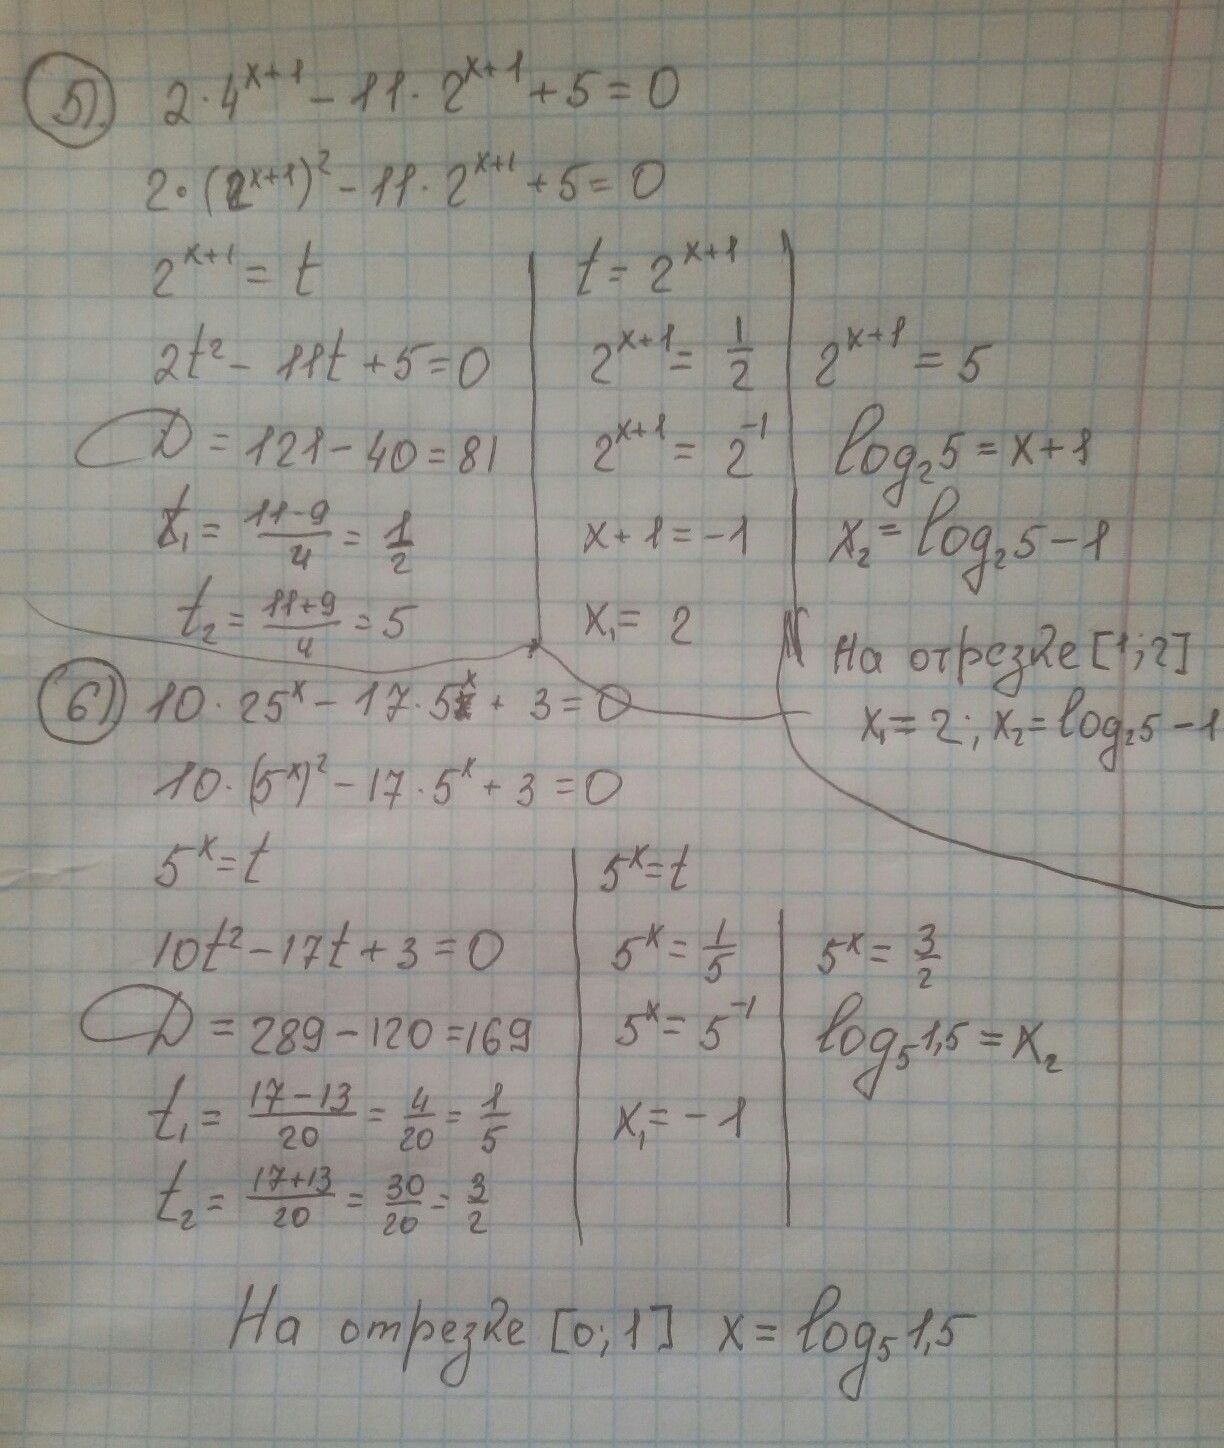 5). 2·4^{x+1} − 11·2^{x+1} + 5 = 0
2·(2^{x+1})² − 11·2^{x+1} + 5 = 0
2^{x+1} = t
2t² − 11t + 5 = 0
D = 121 − 40 = 81
t₁ = (11−9)/4 = 1/2
t₂ = (11+9)/4 = 5
t = 2^{x+1}
2^{x+1} = 1/2
2^{x+1} = 2^{−1}
x + 1 = −1
x₁ = 2
2^{x+1} = 5
log₂5 = x+1
x₂ = log₂5 − 1
На отрезке [1;2]
x₁ = 2; x₂ = log₂5 − 1
6) 10·25^x − 17·5^x + 3 = 0
10·(5^x)² − 17·5^x + 3 = 0
5^x = t
10t² − 17t + 3 = 0
D = 289 − 120 = 169
t₁ = (17−13)/20 = 4/20 = 1/5
t₂ = (17+13)/20 = 30/20 = 3/2
5^x = t
5^x = 1/5
5^x = 5^{−1}
x₁ = −1
5^x = 3/2
log₅1,5 = x₂
На отрезке [0;1] x = log₅1,5